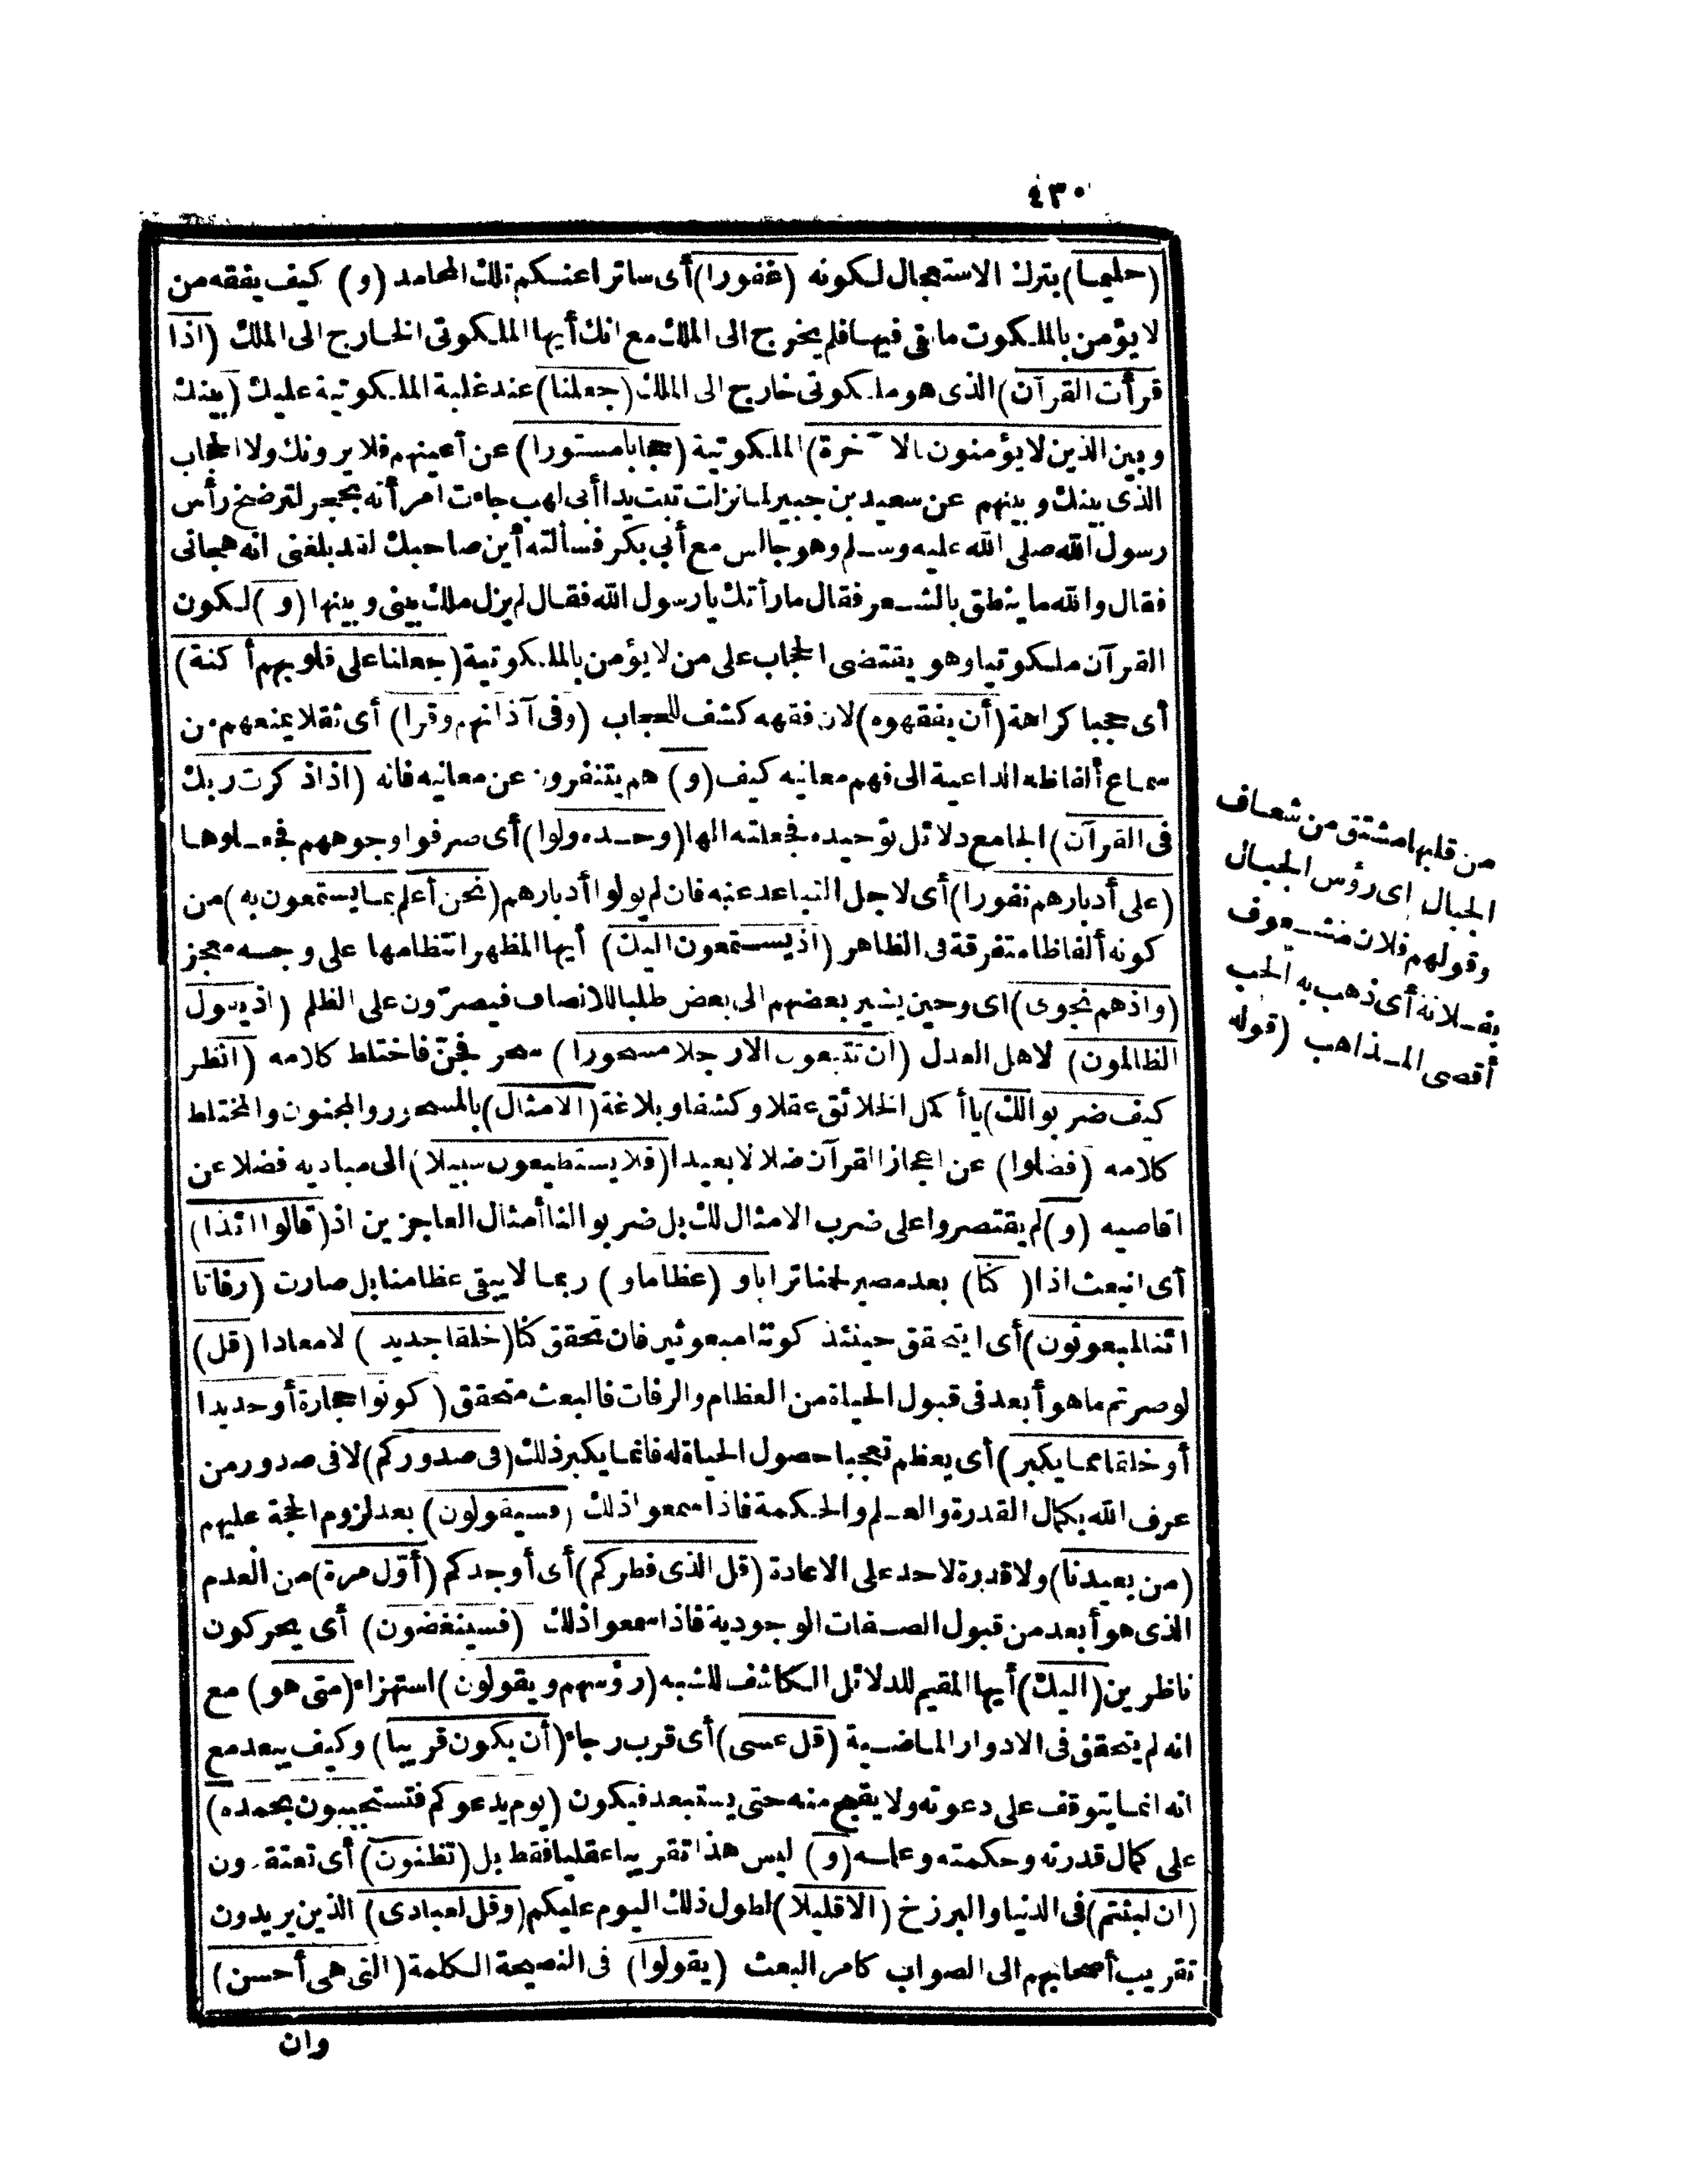 ٤٣٠
(حليما) بترك الاستعجال لكونه (غفورا) أى ساترا عنكم تلك المحامد (و) كيف يفقه من
لا يؤمن بالملكوت ما بقى فيها فلم يخرج الى الملك مع انك أيها الملكوتى الخارج الى الملك (اذا
قرأت القرآن) الذى هو ملكوتى خارج الى الملك (جعلنا) عند غلبة الملكوتية عليك (بينك
وبين الذين لا يؤمنون بالآخرة) الملكوتية (حجابا مستورا) عن أعينهم فلا يرونك ولا الحجاب
الذى بينك وبينهم عن سعيد بن جبير لما نزلت تبت يدا أبى لهب جاءت امرأته بحجر لترضخ رأس
رسول الله صلى الله عليه وسلم وهو جالس مع أبى بكر فسألته أين صاحبك لقد بلغنى انه هجانى
فقال والله ما ينطق بالشعر فقال ما رأتك يا رسول الله فقال لم يزل ملك بينى وبينها (و) لكون
القرآن ملكوتيا وهو يقتضى الحجاب على من لا يؤمن بالملكوتية (جعلنا على قلوبهم أكنة)
أى حجبا كراهة (أن يفقهوه) لان فقهه كشف للحجاب (وفى آذانهم وقرا) أى ثقلا يمنعهم من
سماع ألفاظه الداعية الى فهم معانيه كيف (و) هم يتنفرون عن معانيه فانه (اذا ذكرت ربك
فى القرآن) الجامع دلائل توحيده فجعلته الها (وحده ولوا) أى صرفوا وجوههم فجعلوها
(على أدبارهم نفورا) أى لاجل التباعد عنه فان لم يولوا أدبارهم (نحن أعلم بما يستمعون به) من
كونه ألفاظا متفرقة فى الظاهر (اذ يستمعون اليك) أيها المظهر انتظامها على وجه معجز
(واذ هم نجوى) اى وحين يشير بعضهم الى بعض طلبا للانصاف فيصرّون على الظلم (اذ يقول
الظالمون) لاهل العدل (ان تتبعون الا رجلا مسحورا) سحر فجنّ فاختلط كلامه (انظر
كيف ضربوا لك) يا أكمل الخلائق عقلا وكشفا وبلاغة (الامثال) بالمسحور والمجنون والمختلط
كلامه (فضلوا) عن اعجاز القرآن ضلالا بعيدا (فلا يستطيعون سبيلا) الى مباديه فضلا عن
اقاصيه (و) لم يقتصروا على ضرب الامثال لك بل ضربوا لنا أمثال العاجزين اذ (قالوا ائذا)
أى انبعث اذا (كنا) بعد مصير لحمنا ترابا و (عظاما و) ربما لا يبقى عظامنا بل صارت (رفاتا
ائنا لمبعوثون) أى ايتحقق حينئذ كوننا مبعوثين فان تحقق كنا (خلقا جديدا) لا معادا (قل)
لو صرتم ما هو أبعد فى قبول الحياة من العظام والرفات فالبعث متحقق (كونوا حجارة أو حديدا
أو خلقا مما يكبر) أى يعظم تعجبا حصول الحياة له فانما يكبر ذلك (فى صدوركم) لا فى صدور من
عرف الله بكمال القدرة والعلم والحكمة فاذا سمعوا ذلك (فسيقولون) بعد لزوم الحجة عليهم
(من يعيدنا) ولا قدرة لاحد على الاعادة (قل الذى فطركم) أى أوجدكم (أوّل مرة) من العدم
الذى هو أبعد من قبول الصفات الوجودية فاذا سمعوا ذلك (فسينغضون) أى يحركون
ناظرين (اليك) أيها المقيم للدلائل الكاشف للشبه (رؤسهم ويقولون) استهزاء (متى هو) مع
انه لم يتحقق فى الادوار الماضية (قل عسى) أى قرب رجاء (أن يكون قريبا) وكيف يبعد مع
انه انما يتوقف على دعوته ولا يقبح منه حتى يستبعد فيكون (يوم يدعوكم فتستجيبون بحمده)
على كمال قدرته وحكمته وعلمه (و) ليس هذا تقريبا عقليا فقط بل (تظنون) أى تعتقدون
(ان لبثتم) فى الدنيا والبرزخ (الا قليلا) لطول ذلك اليوم عليكم (وقل لعبادى) الذين يريدون
تقريب أصحابهم الى الصواب كامر البعث (يقولوا) فى النصيحة الكلمة (التى هى أحسن)
وان
من قلبها مشتق من شعاف
الجبال اى رؤس الجبال
وقولهم فلان مشعوف
بفلانة أى ذهب به الحب
أقصى المذاهب (قوله